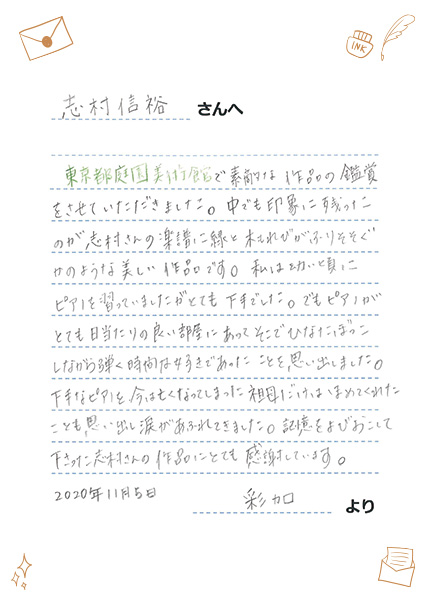 INK
志村信裕 さんへ
東京都庭園美術館で素敵な作品の鑑賞
をさせていただきました。中でも印象に残った
のが志村さんの楽譜に緑と木もれびがふりそそぐ
かのような美しい作品です。私は幼い頃に
ピアノを習っていましたがとても下手でした。でもピアノが
とても日当たりの良い部屋にあってそこでひなたぼっこ
しながら弾く時間は好きであったことを思い出しました。
下手なピアノを今は亡くなってしまった祖母だけはほめてくれた
ことも思い出し涙があふれてきました。記憶をよびおこして
下さった志村さんの作品にとても感謝しています。
2020年11月5日 彩加 より